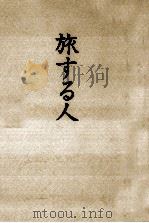 旅する人
mtoou.info